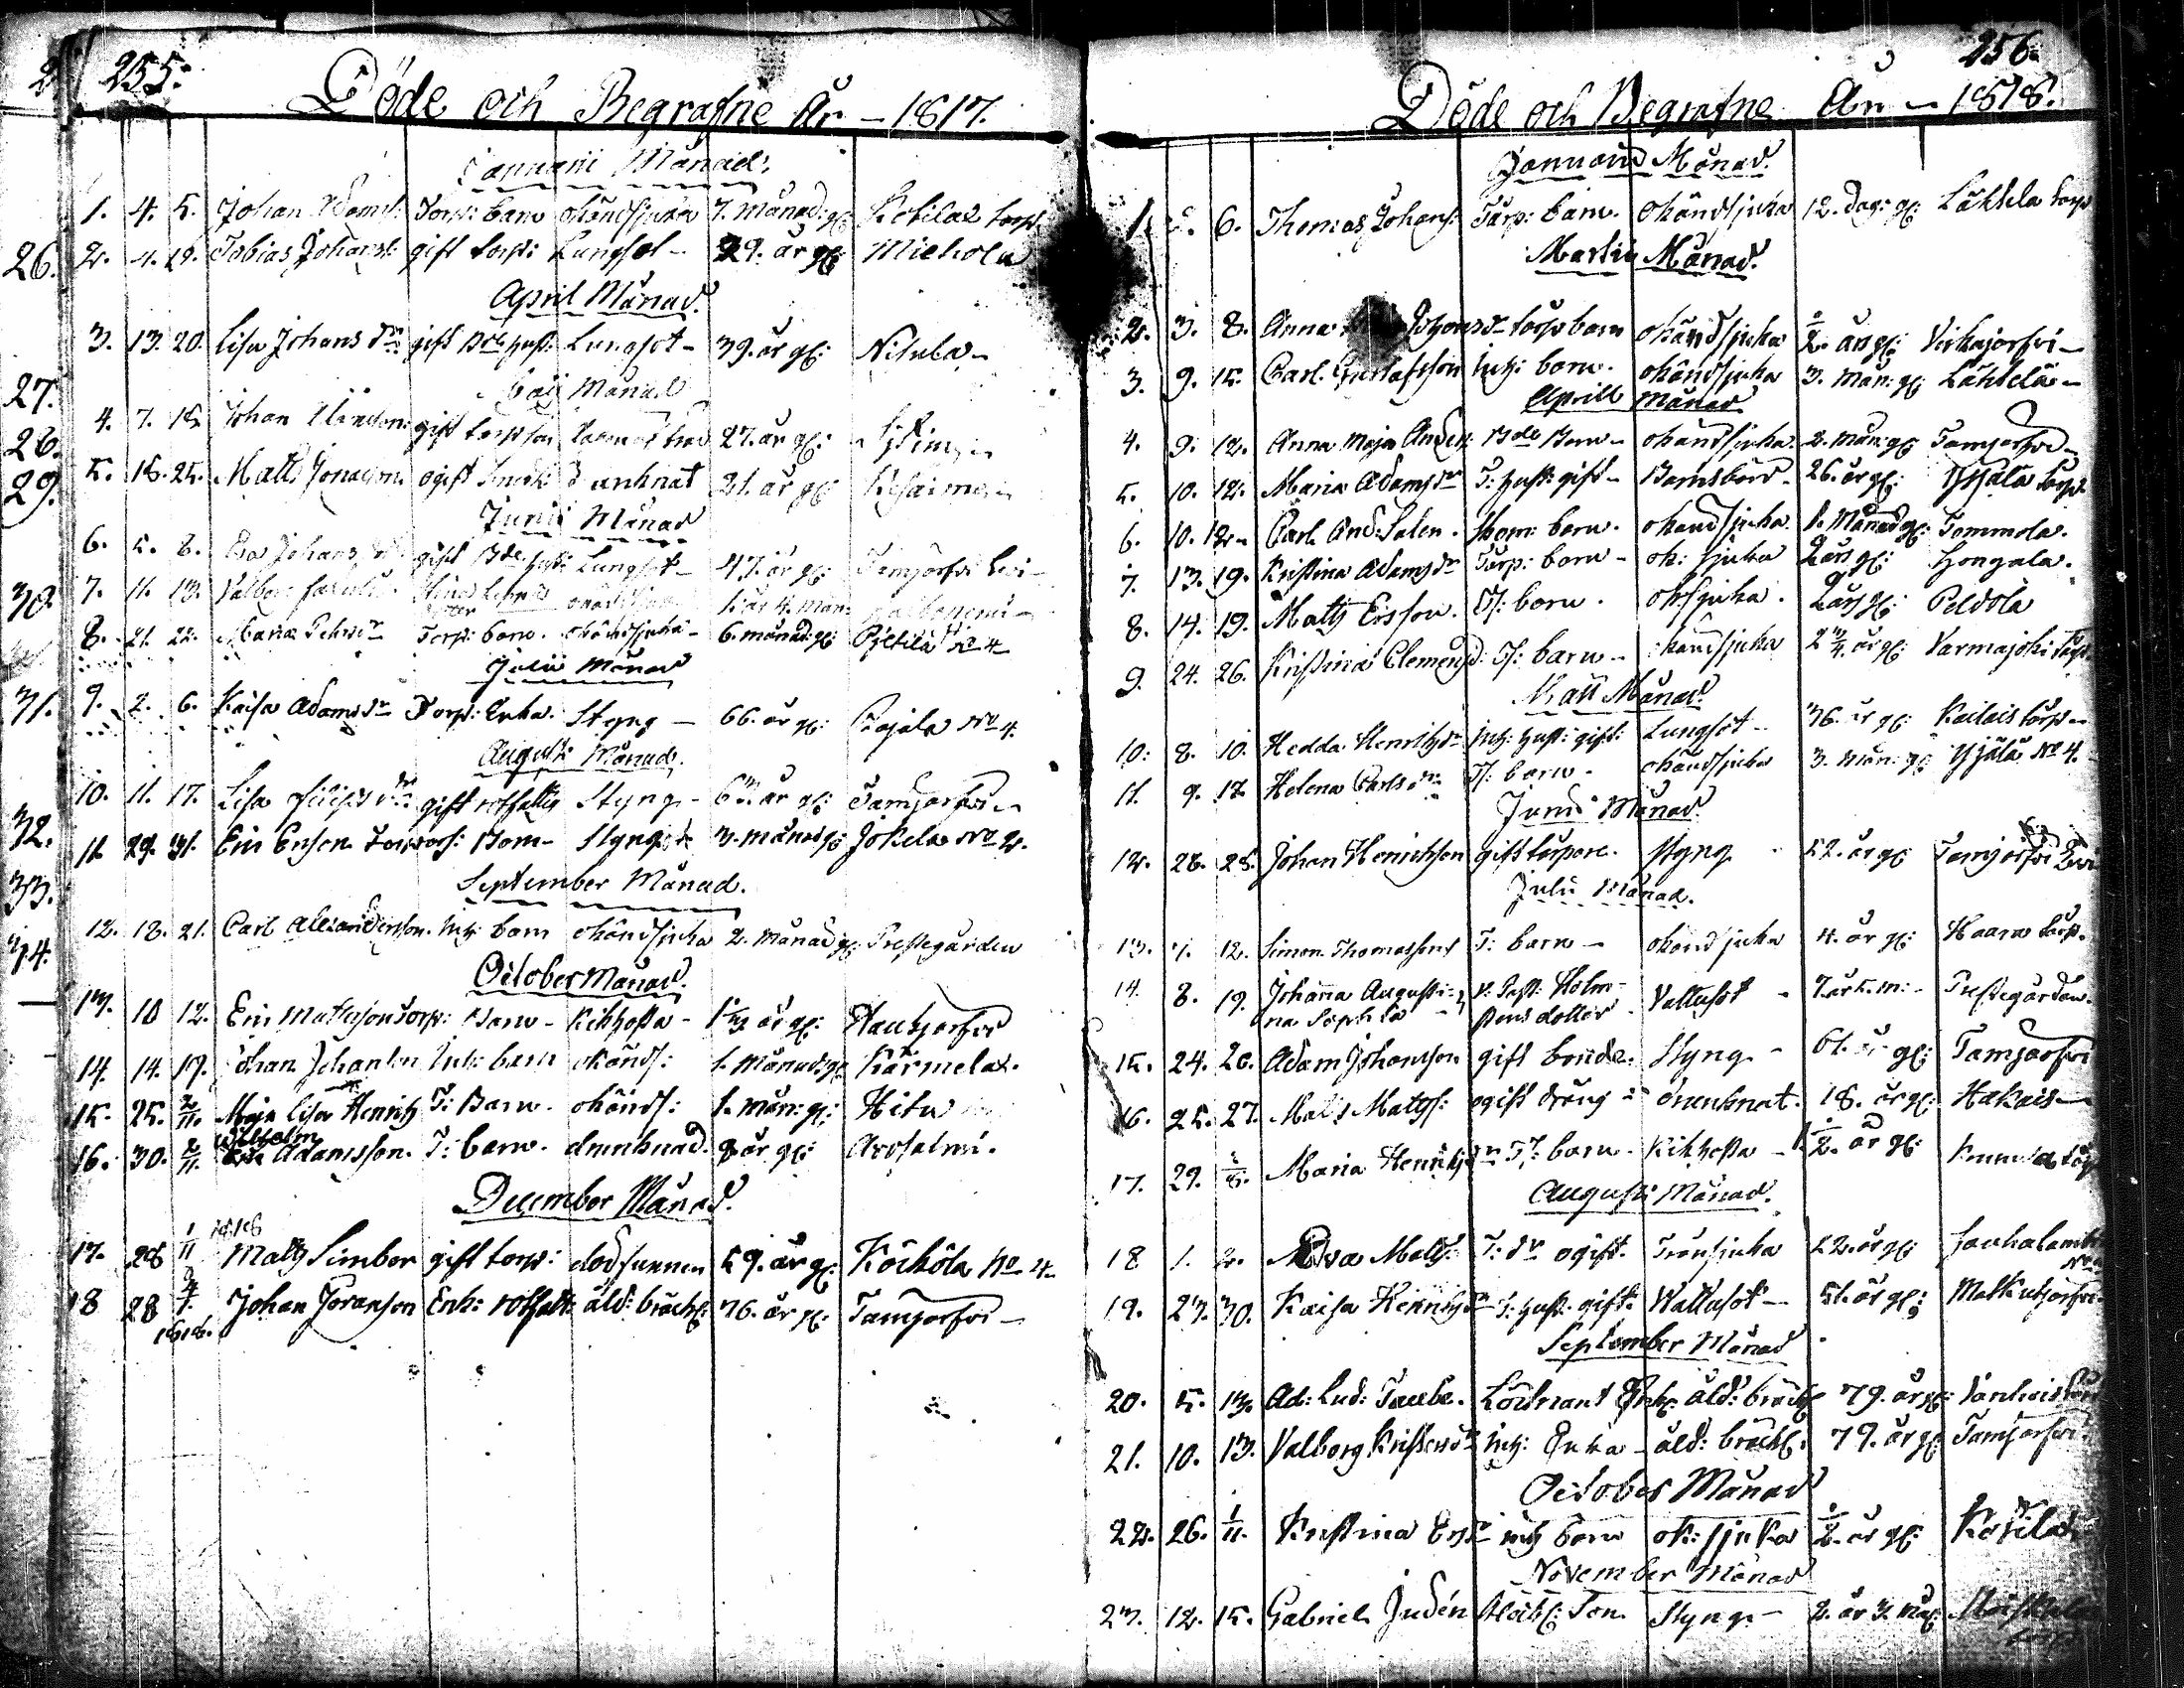 255.
Döde och Begrafne År - 1817.
Januarii Månad.
1. 4. 5. Johan Adams: Torp: barn okändsjuka 7. månad: gl: Kotila torp.
2. 4. 19. Tobias Johans: gift torp: Lungsot - 29. år gl: Miehola
April Månad.
3. 13. 20. Lisa Johans dr gift Bde hust: Lungsot - 39. år gl: Nikula -
Maij Månad
4. 7. 15. Johan gift 27. år gl:
5. 15. 25. Matts Jonasson ogift drunknat 21. år gl:
Junii Månad
6. 5. 8. Johans dr gift Bde hust: Lungsot - 47. år gl: Tamjärfvi
7. 11. 13. Valborg 1. år 4. mån:
8. 21. 22. Maria Torp: barn. okändsjuka - 6. månad: gl: Pjetilä No 4
Julii Månad
9. 2. 6. Kaisa Adams dr Torp: Enka. Styng - 66. år gl: Rajala No 4.
Augusti Månad.
10. 11. 17. Lisa Philips dr gift rotfattig Styng - 63. år gl: Tamjärfvi -
11. 29. 31. Eric Ersson Torp: Barn - Styng 3. månad gl: Jokela No 2.
September Månad.
12. 18. 21. Carl Alexandersson. Inh: barn okändsjuka 2. månad gl: Prestegården
October Månad.
13. 10 12. Eric Mattsson torp: Barn - Kikhosta - 1 1/2 år gl: Hautjärfvi
14. 14. 19. Johan Johansson Inh: barn okänds: 1. månad: gl: Kärmelax.
15. 25. 2/11. Maja Lisa Henrichs T: Barn. okänds: 1. mån: gl: Hitu
16. 30. 2/11. Wilhelm Adamsson. T: barn. drunknad. 8 år gl: Arosalmi.
December Månad.
17. 28 1/11 1818 Matts Simber gift torp: dödfunnen 59. år gl: Köckölä No 4.
18 28 4/1. 1818. Johan Göransson Enk: rotfatt: åld: bräckl: 76. år gl: Tamjärfvi -
26.
27.
28.
29.
30
31.
32.
33.
34.
256.
Döde och Begrafne År - 1818.
Januarii Månad.
1. 6. Thomas Johans: Torp: barn. okändsjuka 12. dag: gl: Lähkelä torp
Martii Månad.
2. 3. 8. Anna Johans dr torp barn okändsjuka 1/2. år gl: Virkajärfvi -
3. 9. 15. Carl Gustafsson Inh: barn. okändsjuka 3. mån: gl: Lähkelä -
Aprill Månad
4. 9. 12. Anna Maja Anders: Bde Barn - okändsjuka. 2. mån: gl: Tamjärfvi -
5. 10. 12. Maria Adams dr T: hust: gift - Barnsbörd - 26. år gl: Hjälä torp.
6. 10. 12 - Carl And: Salen. barn. okändsjuka. 1. Månad gl: Tommola.
7. 13. 19. Kristina Adams dr Torp: barn - ok: sjuka 2 år gl: Hongala.
8. 14. 19. Matts Ersson. T: barn. ok: sjuka. 2 år gl: Peldola
9. 24. 26. Kristina Clemens d: T: barn - okändsjuka 2 3/4. år gl: Varmajoki torp.
Maii Månad.
10: 8. 10. Hedda Henrichs dr Inh: hust: gift: Lungsot - 36. år gl: Kailais torp -
11. 9. 17. Helena Carls dr T: barn - okändsjuka 3. mån: gl: Hjälä No 4.
Junii Månad.
12. 28. 28. Johan Henricsson gift torpare. Styng - 52. år gl: Tamjärfvi
Julii Månad.
13. 7. 12. Simon Thomasson T: barn - okändsjuka 4. år gl: Haara torp.
14. 8. 19. Johanna Augusti-
na Sophia V: Past: Holm-
stens dotter - Vattusot - 7. år 5. m: - Prestegården.
15. 24. 26. Adam Johansson gift bonde. Styng - 61. år gl: Tamjärfvi
16. 25. 27. Matts Matts: ogift dräng - drunknat. 18. år gl: Hakais -
17. 29. 2/8. Maria Henrichs dr T: barn - Kikhosta - 1 1/2. år gl:
Augusti Månad.
18 1. 2. Eva Matts: T: dr ogift. Tronsjuka 22. år gl: Jouhalambi
19. 27. 30. Kaisa Henrichs dr T: hust: gift. Wattusot - 51. år gl: Matkusjärfvi.
September Månad.
20. 5. 13. Ad: Lud: Taube. Löitnant Enkl: åld: bräckl: 79. år gl:
21. 10. 13. Valborg Kristers dr Inh: Enka - åld: bräckl: 79. år gl: Tamjärfvi.
October Månad
22. 26. 1/11. Kristina Ers dr inh barn ok: sjuka 1/2. år gl: Kotila
November Månad
23. 12. 15. Gabriel Judén Son Styng - 2. år 3. mån: